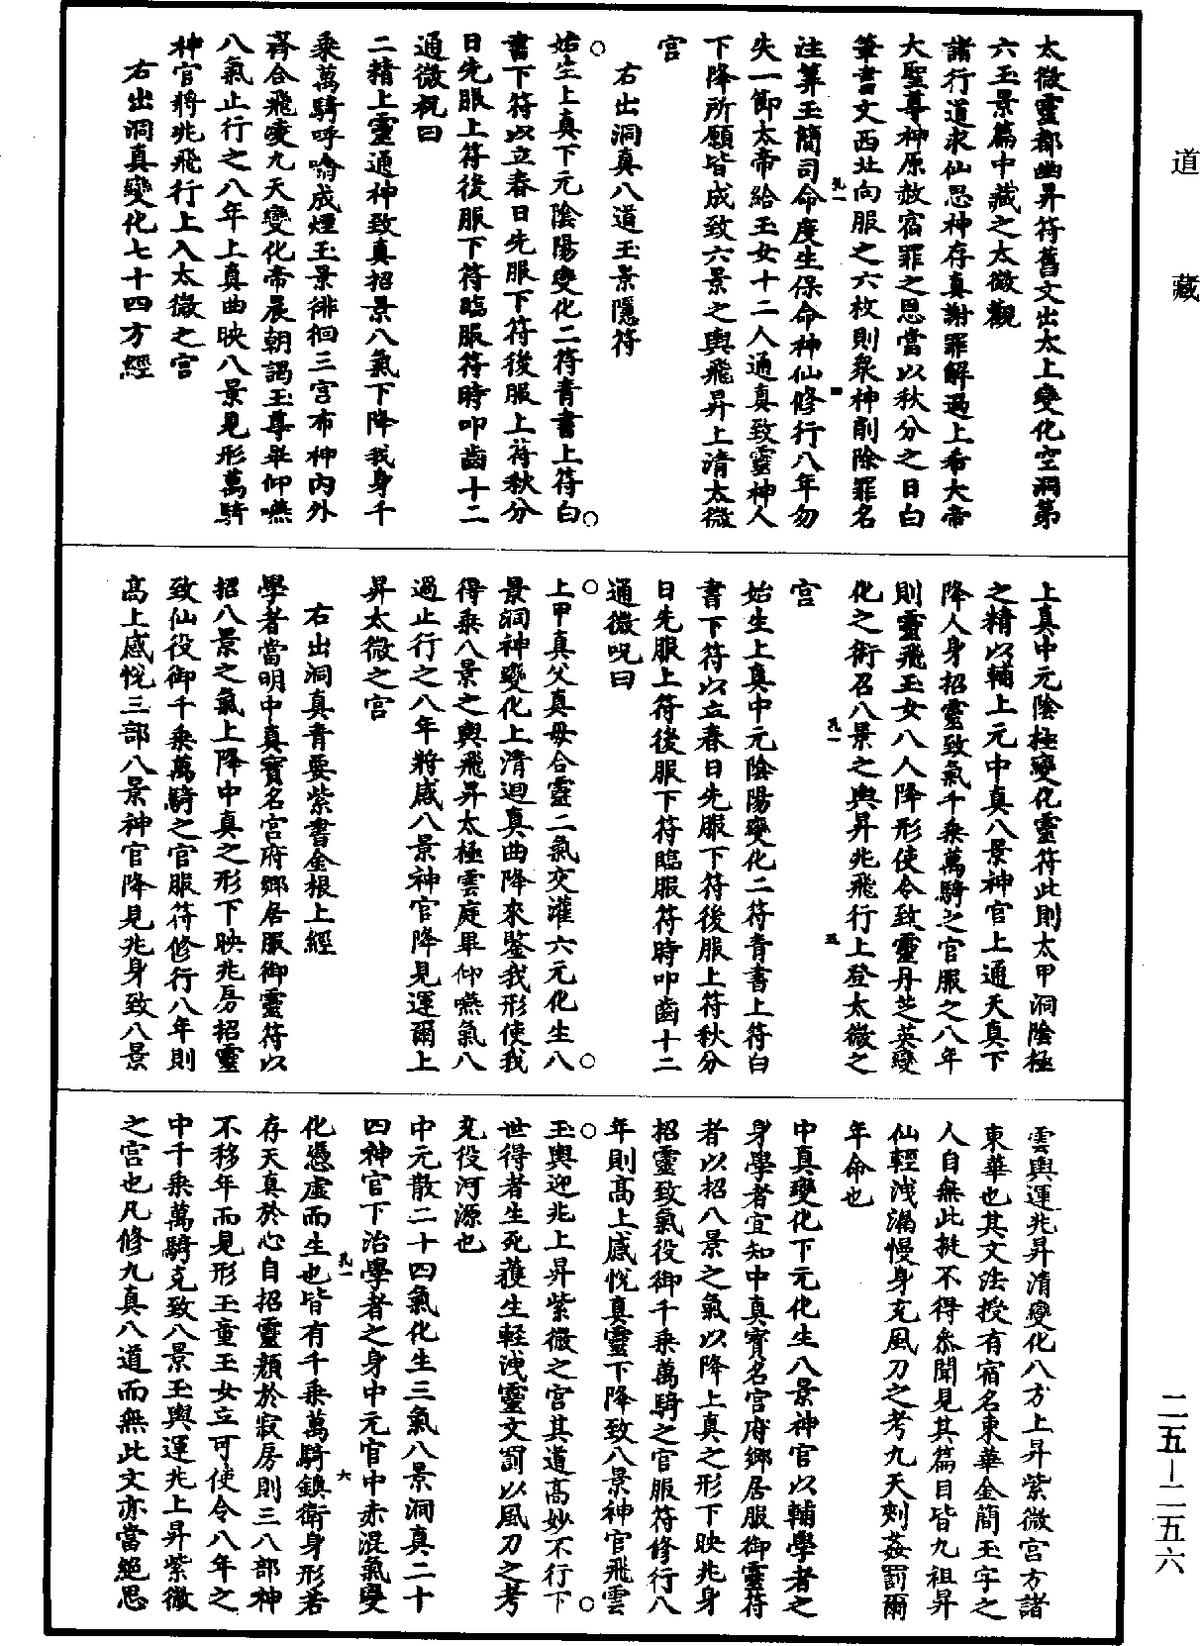 道藏
太微靈都幽昇符舊文出太上變化空洞第
六玉景篇中藏之太微觀
諸行道求仙思神存真謝罪解過上希大帝
大聖尊神原赦宿罪之恩當以秋分之日白
筆書文西北向服之六枚則衆神削除罪名
孔一
注筭玉簡司命度生保命神仙修行八年勿
失一節太帝給玉女十二人通真致靈神人
下降所願皆成致六景之輿飛昇上清太微
宮
右出洞真八道玉景隱符
始生上真下元陰陽變化二符青書上符白
書下符以立春日先服下符後服上符秋分
日先服上符後服下符臨服符時叩齒十二
通微祝曰
二精上靈通神致真招景八氣下降我身千
乘萬騎呼噏成煙玉景徘徊三宮布神內外
齊合飛凌九天變化帝晨朝謁玉尊畢仰嚥
八氣止行之八年上真曲映八景見形萬騎
神官將兆飛行上入太微之宮
右出洞真變化七十四方經
上真中元陰極變化靈符此則太甲洞陰極
之精以輔上元中真八景神官上通天真下
降人身招靈致氣千乘萬騎之官服之八年
則靈飛玉女八人降形使令致靈丹芝英變
化之術召八景之輿昇兆飛行上登太微之
孔一
五
宮
始生上真中元陰陽變化二符青書上符白
書下符以立春日先服下符後服上符秋分
日先服上符後服下符臨服符時叩齒十二
通微呪曰
上甲真父真母合靈二氣交灌六元化生八
景洞神變化上清迴真曲降來鑒我形使我
得乘八景之輿飛昇太極雲庭畢仰嚥氣八
過止行之八年將感八景神官降見運爾上
昇太微之宮
右出洞真青要紫書金根上經
學者當明中真寳名宮府鄉居服御靈符以
招八景之氣上降中真之形下映兆房招靈
致仙役御千乘萬騎之官服符修行八年則
高上感悅三部八景神官降見兆身致八景
雲輿運兆昇清變化八方上昇紫微宮方諸
東華也其文法授有宿名東華金簡玉字之
人自無此挺不得叅聞見其篇目皆九祖昇
仙輕洩漏慢身充風刀之考九天剋姦罰爾
年命也
中真變化下元化生八景神官以輔學者之
身學者宜知中真寳名宮府鄉居服御靈符
者以招八景之氣以降上真之形下映兆身
招靈致氣役御千乘萬騎之官服符修行八
年則高上感悅真靈下降致八景神官飛雲
玉輿迎兆上昇紫微之宮其道高妙不行下
世得者生死蒦生輕洩靈文罰以風刀之考
充役河源也
中元散二十四氣化生三氣八景洞真二十
四神官下治學者之身中元官中赤混氣變
孔一
六
化憑虛而生也皆有千乘萬騎鎮衛身形若
存天真於心自招靈顏於寂房則三八部神
不移年而見形玉童玉女立可使令八年之
中千乘萬騎克致八景玉輿運兆上昇紫微
之宮也凡修九真八道而無此文亦當絕思
二五－二五六